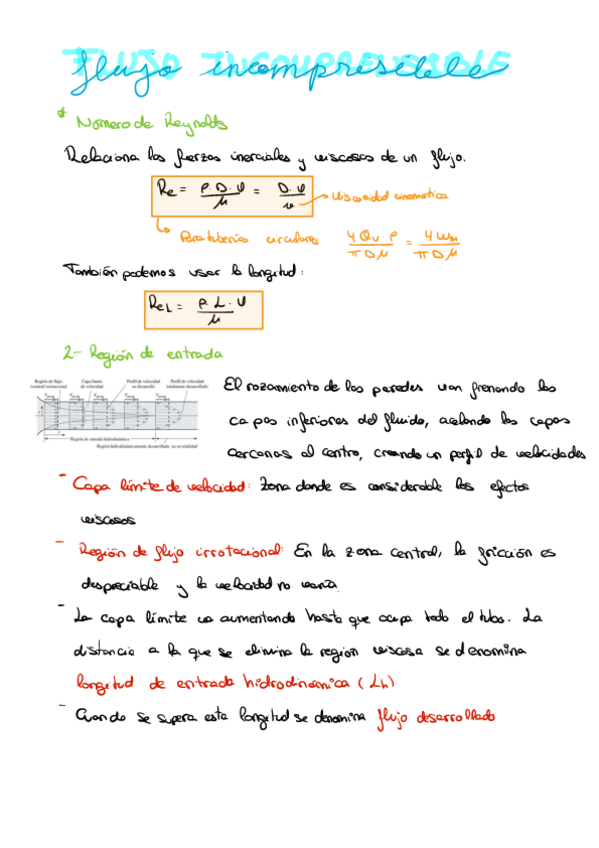 FLUJO INCOMPRENSIBLE
flujo incompresible
* Número de Reynolds
Relaciona las fuerzas inerciales y viscosas de un flujo.
Re = ρ·D·v / μ = D·v / ν → Viscosidad cinematica
Para tuberías circulares 4Qv·ρ / πDμ = 4Wm / πDμ
También podemos usar la longitud:
ReL = ρ·L·v / μ
2- Región de entrada
Región de flujo (central) irrotacional
Capa límite de velocidad
Perfil de velocidad en desarrollo
Perfil de velocidad totalmente desarrollado
Región de entrada hidrodinámica
Región hidrodinámicamente desarrollada en su totalidad
El rozamiento de las paredes van frenando las
capas inferiores del fluido, acelando las capas
cercanas al centro, creando un perfil de velocidades
- Capa límite de velocidad: Zona donde es considerable los efectos
viscosos
- Región de flujo irrotacional: En la zona central, la fricción es
despreciable y la velocidad no varía.
- La capa límite va aumentando hasta que ocupa todo el tubo. La
distancia a la que se elimina la region viscosa se denomina
longitud de entrada hidrodinámica (Lh)
- Cuando se supera esta longitud se denomina flujo desarrollado